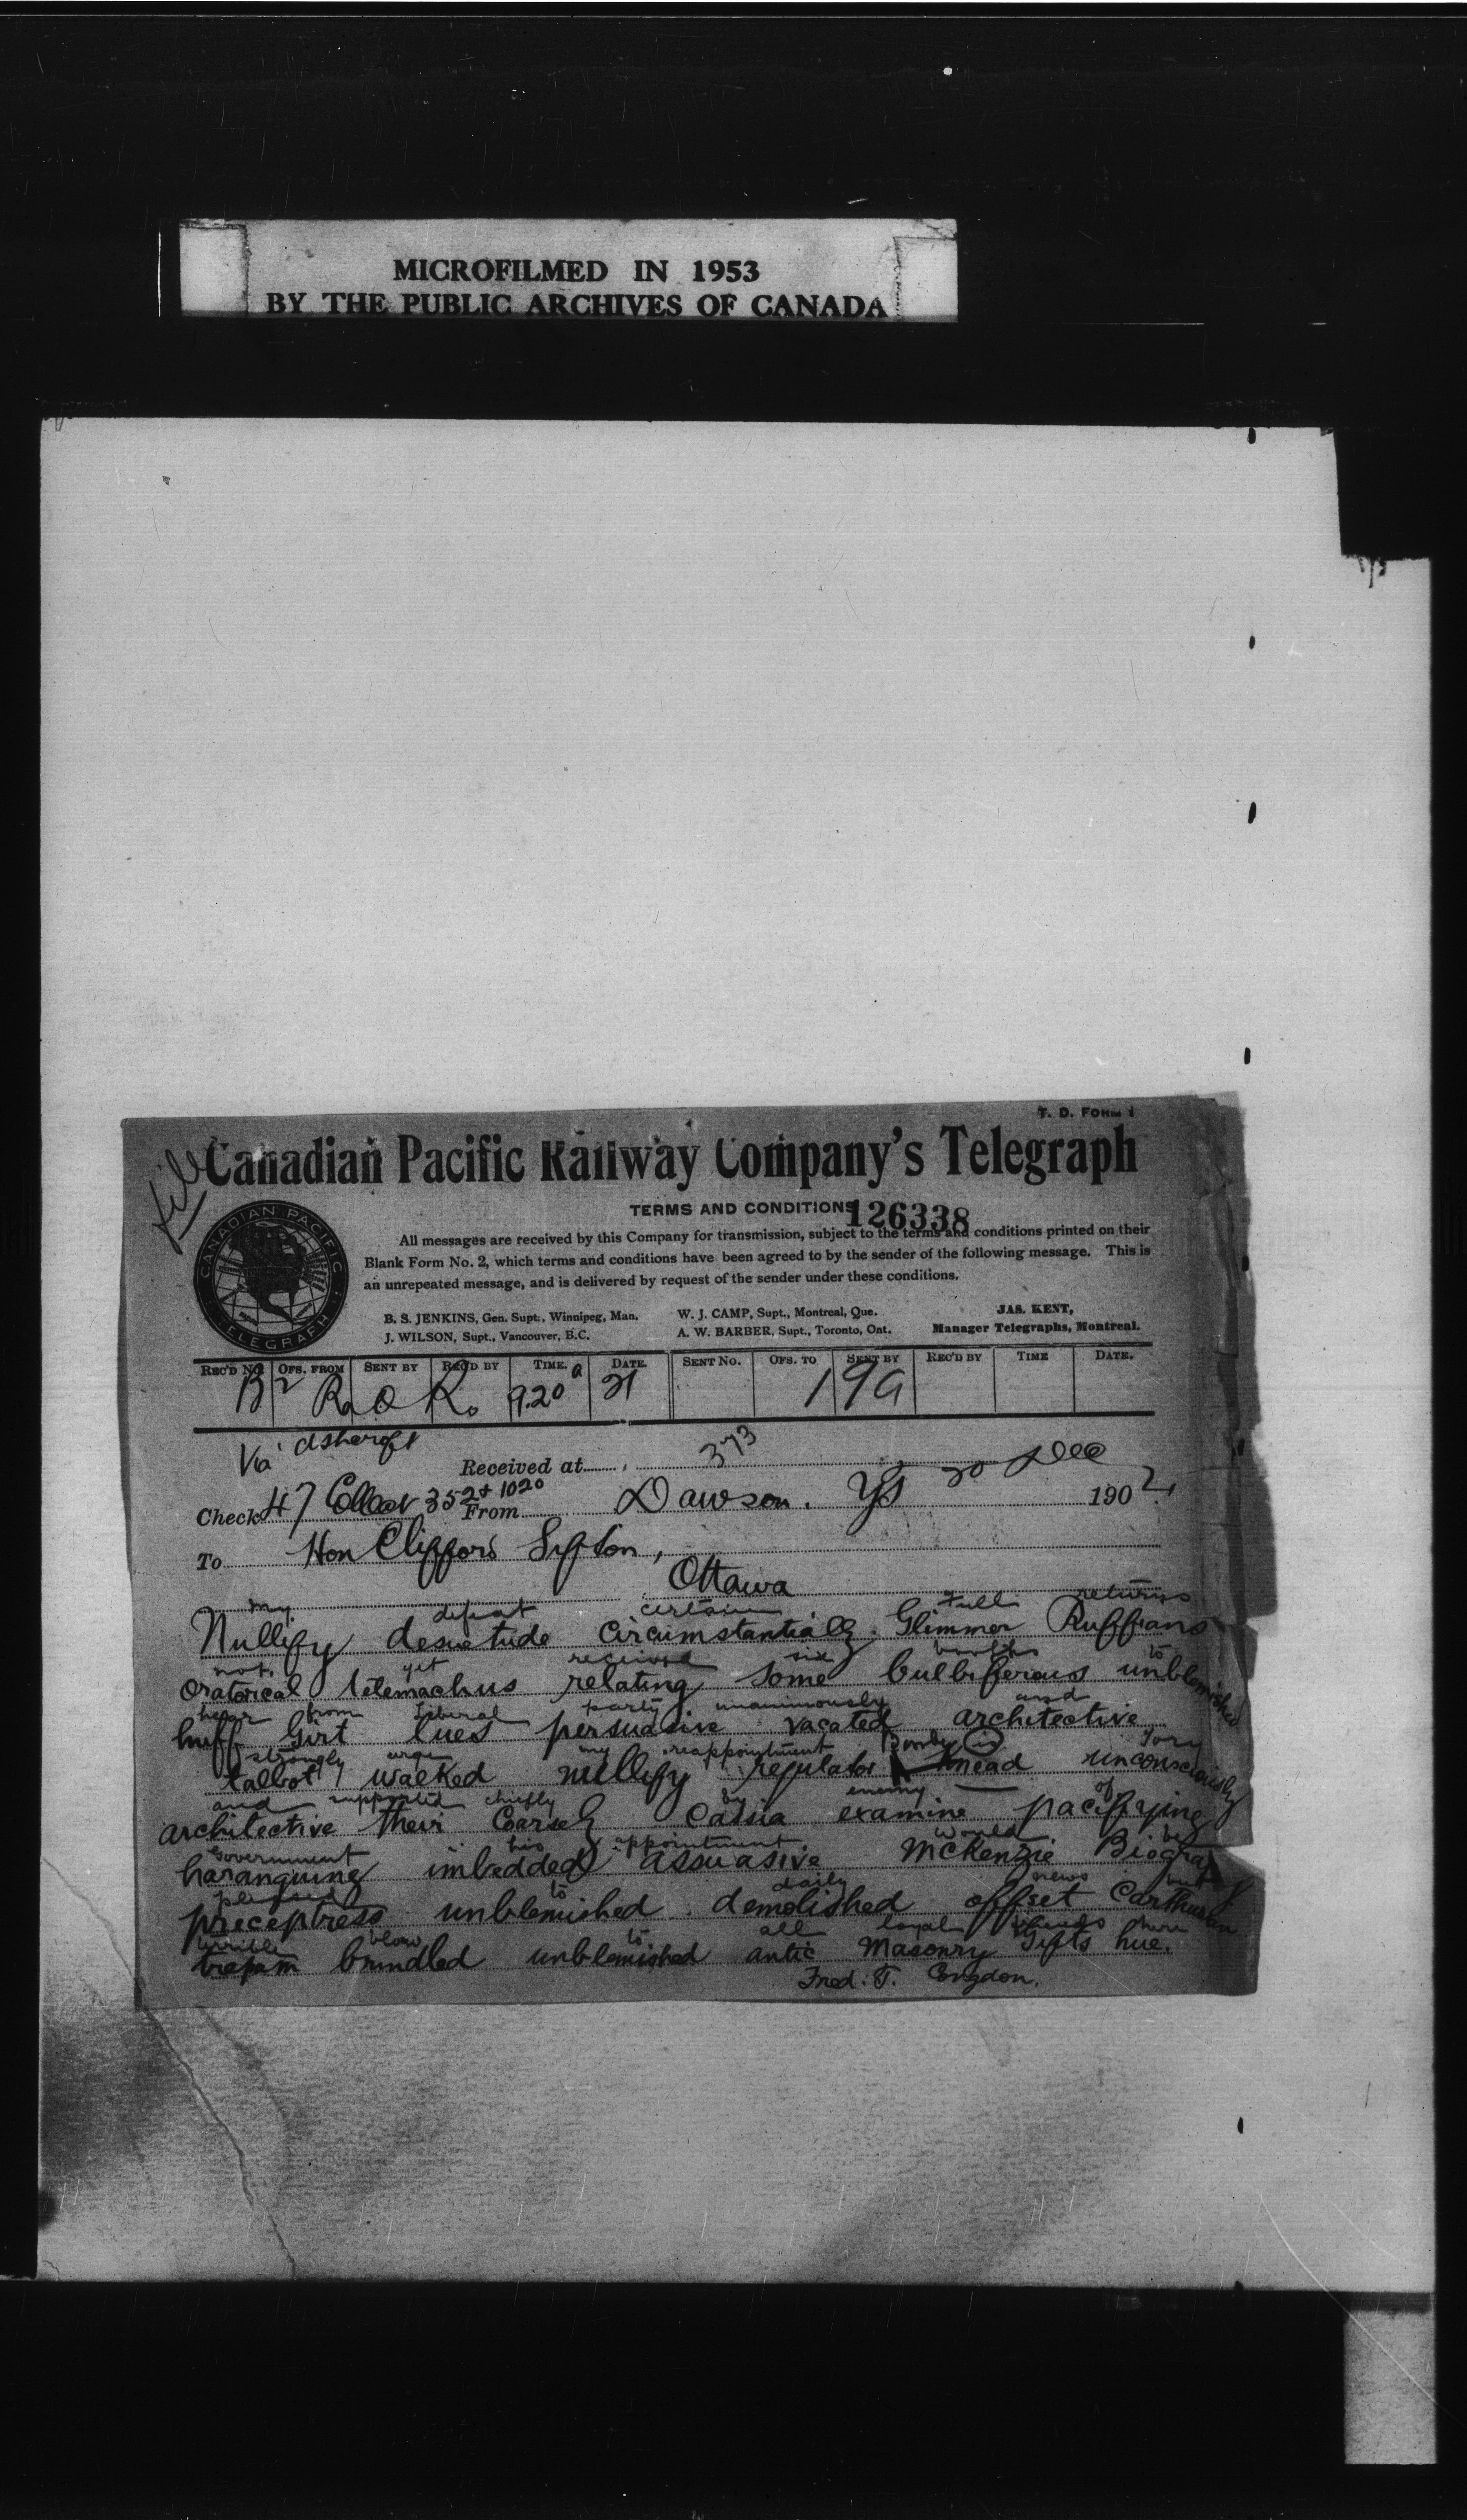 MICROFILMED IN 1953
BY THE PUBLIC ARCHIVES OF CANADA
T. D. FORM 1
Canadian Pacific Railway Company's Telegraph
TERMS AND CONDITIONS
126338
All messages are received by this Company for transmission, subject to the terms and conditions printed on their
Blank Form No. 2, which terms and conditions have been agreed to by the sender of the following message. This is
an unrepeated message, and is delivered by request of the sender under these conditions.
CANADIAN PACIFIC
TELEGRAPH
B. S. JENKINS, Gen. Supt., Winnipeg, Man. W. J. CAMP, Supt., Montreal, Que. JAS. KENT,
J. WILSON, Supt., Vancouver, B.C. A. W. BARBER, Supt., Toronto, Ont. Manager Telegraphs, Montreal.
REC'D NO. OFS. FROM SENT BY REC'D BY TIME. DATE. SENT NO. OFS. TO SENT BY REC'D BY TIME DATE.
9.20 a 21
Via Ashcroft
Received at 373
Check 47 Collect 352 + 1020 From Dawson. 20 Dec 1902
To Hon Clifford Sifton,
Ottawa
my defeat certain Full returns
Nullify desuetude Circumstantially. Glimmer Ruffians
not yet received six booths to
oratorical telemachus relating some bulbiferous unblemished
hear from Liberal party unanimously and
huff Girt lues persuasive vacated architective
strongly urge my reappointment in Tory
talbot walked nullify regulator knead unconsciously
and supported chiefly by enemy of
architective their Carsely Cassia examine pacifying
Government his appointment would be
haranguing imbedded assuasive McKenzie Biograph
pleased to daily news but
preceptress unblemished demolished offset Carthusian
terrible blow to all loyal friends here
trepam brindled unblemished antic Masonry Gifts hue.
Fred. T. Congdon.